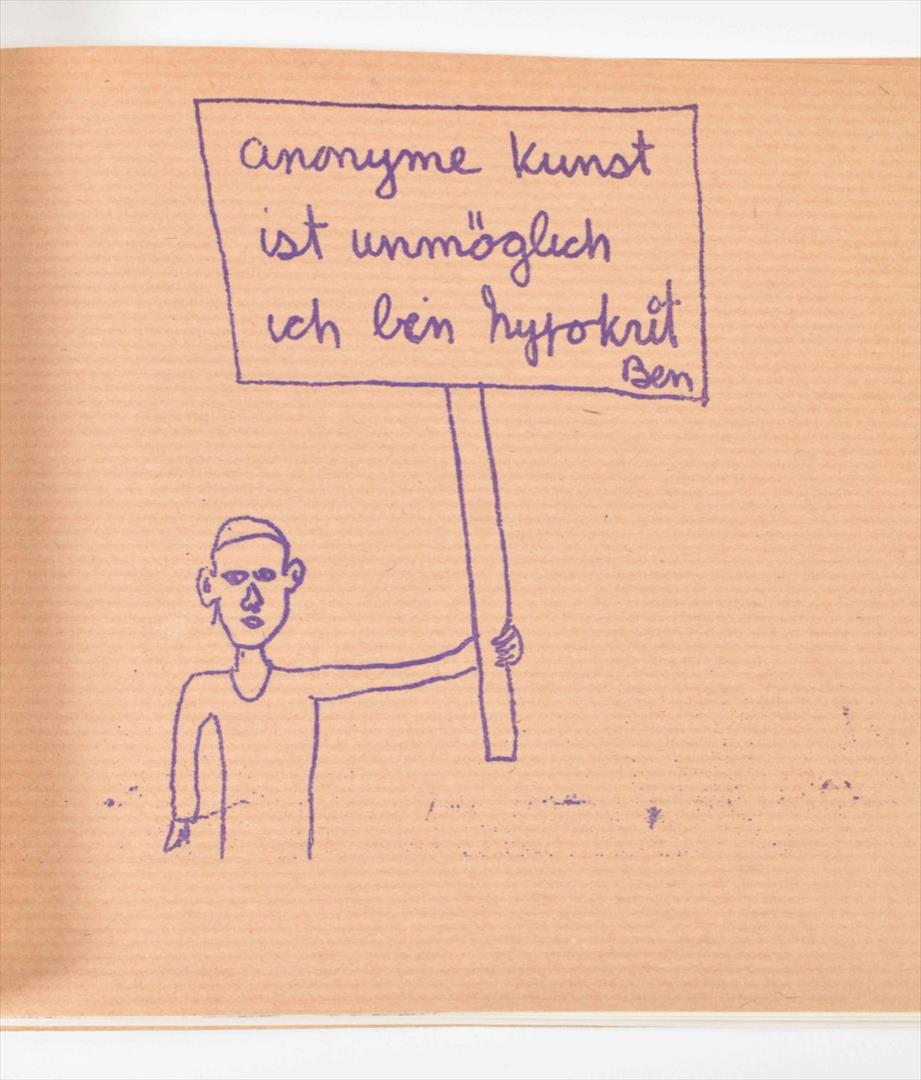 anonyme kunst
ist unmöglich
ich bin hypokrit
Ben